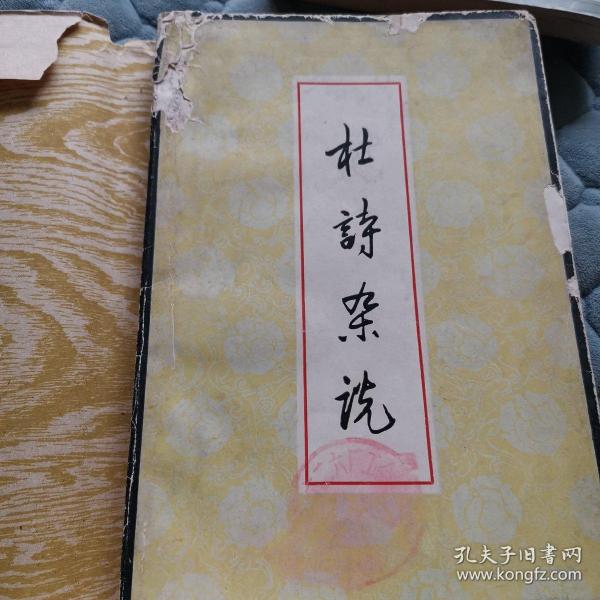 杜詩杂说
孔夫子旧書网
www.kongfz.com